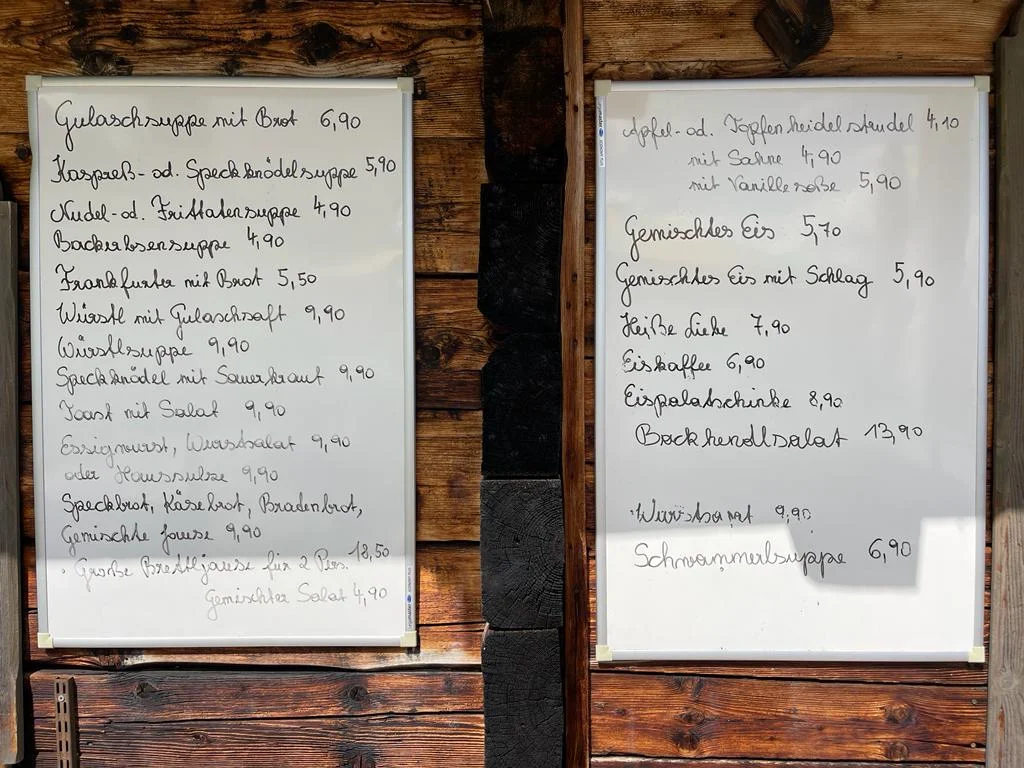 Gulaschsuppe mit Brot 6,90
Kaspreß- od. Speckknödelsuppe 5,90
Nudel- od. Frittatensuppe 4,90
Backerbsensuppe 4,90
Frankfurter mit Brot 5,50
Würstl mit Gulaschsaft 9,90
Würstlsuppe 9,90
Speckknödel mit Sauerkraut 9,90
Toast mit Salat 9,90
Essigwurst, Wurstsalat 9,90
oder Haussulze 9,90
Speckbrot, Käsebrot, Bradenbrot,
Gemischte Jause 9,90
Große Brettljause für 2 Pers. 18,50
Gemischter Salat 4,90
Apfel- od. Topfenheidelstrudel 4,10
mit Sahne 4,90
mit Vanillesoße 5,90
Gemischtes Eis 5,70
Gemischtes Eis mit Schlag 5,90
Heiße Liebe 7,90
Eiskaffee 6,90
Eispalatschinke 8,90
Backhendlsalat 13,90
9,90
Schwammerlsuppe 6,90